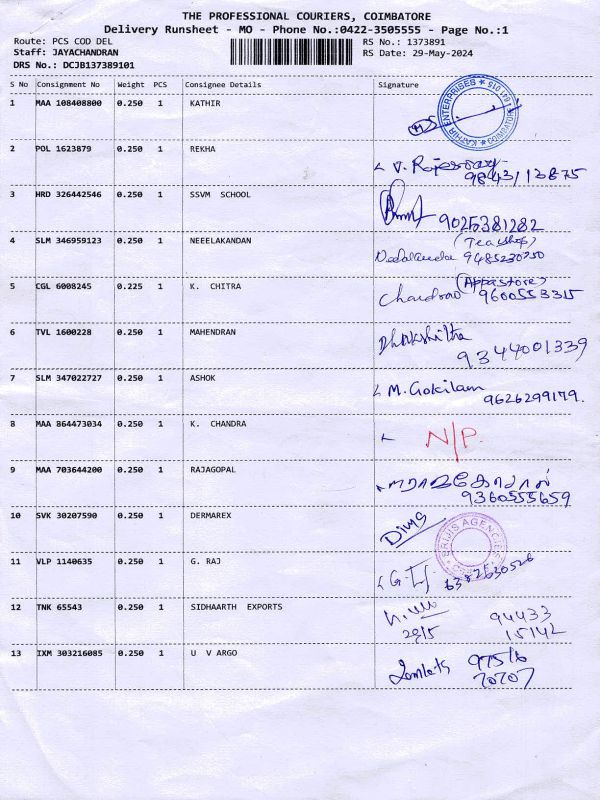 THE PROFESSIONAL COURIERS, COIMBATORE
Delivery Runsheet - MO - Phone No.:0422-3505555 - Page No.:1
Route: PCS COD DEL RS No.: 1373891
Staff: JAYACHANDRAN RS Date: 29-May-2024
DRS No.: DCJB137389101
S No Consignment No Weight PCS Consignee Details Signature
1 MAA 108408800 0.250 1 KATHIR
KATHIR ENTERPRISES * COIMBATORE
2 POL 1623879 0.250 1 REKHA
3 HRD 326442546 0.250 1 SSVM SCHOOL
9025381282
4 SLM 346959123 0.250 1 NEEELAKANDAN (Tea shop)
9485230750
5 CGL 6008245 0.225 1 K. CHITRA (Appastore)
9600553315
6 TVL 1600228 0.250 1 MAHENDRAN
9344001339
7 SLM 347022727 0.250 1 ASHOK M. Gokilam
9626299179.
8 MAA 864473034 0.250 1 K. CHANDRA N/P.
9 MAA 703644200 0.250 1 RAJAGOPAL
9360555659
10 SVK 30207590 0.250 1 DERMAREX
AGENCIES
11 VLP 1140635 0.250 1 G. RAJ 6382630526
12 TNK 65543 0.250 1 SIDHAARTH EXPORTS 94433
29/5 15142
13 IXM 303216085 0.250 1 U V ARGO 97516
70707